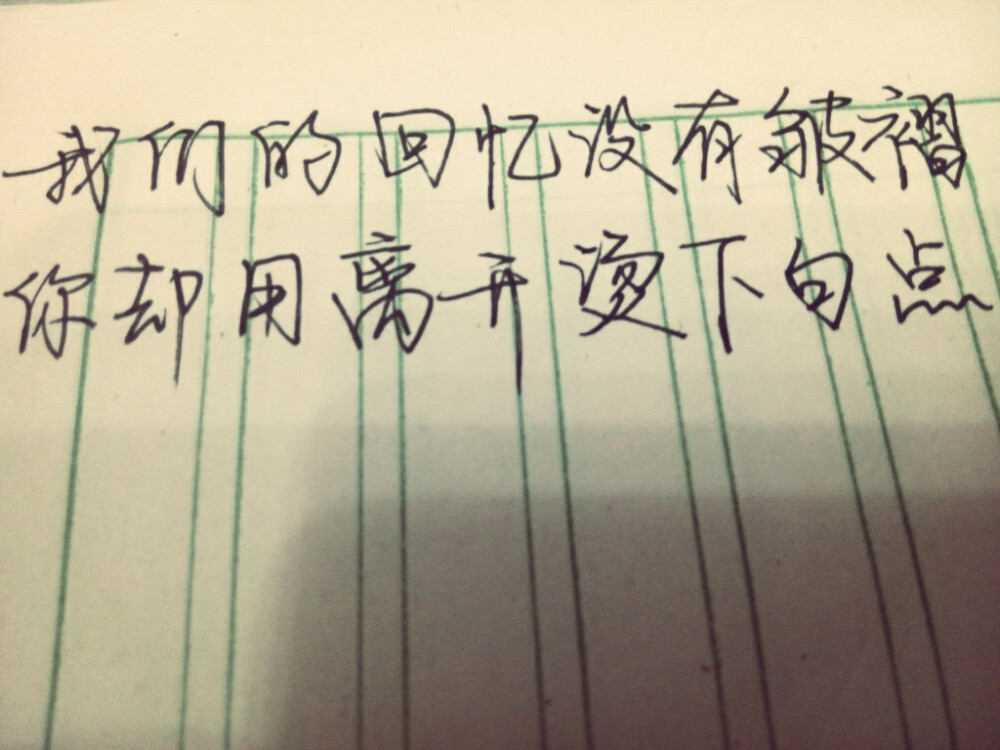 我们的回忆没有皱褶
你却用离开烫下句点